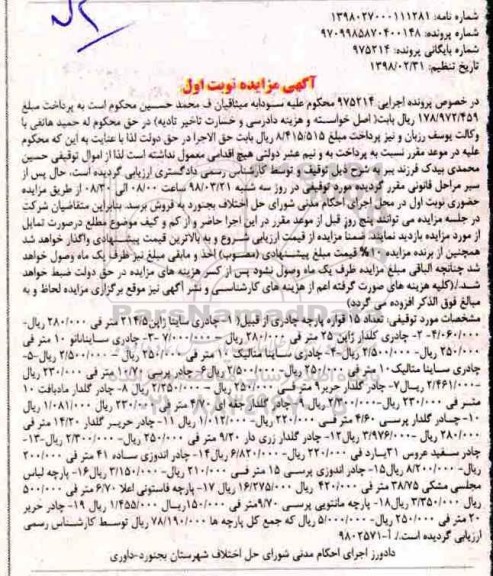 شماره نامه: ۱۳۹۸۰۲۷۰۰۰۱۱۱۲۸۱
شماره پرونده: ۹۷۰۹۹۸۵۸۷۰۴۰۰۱۴۸
شماره بایگانی پرونده: ۹۷۵۲۱۴
تاریخ تنظیم: ۱۳۹۸/۰۲/۳۱
آگهی مزایده نوبت اول
در خصوص پرونده اجرایی ۹۷۵۲۱۴ محکوم علیه سودابه میثاقیان ف محمد حسین محکوم است به پرداخت مبلغ
۱۷۸/۹۷۲/۴۵۹ ریال بابت( اصل خواسته و هزینه دادرسی و خسارت تاخیر تادیه) در حق محکوم له حمید هاتفی با
وکالت یوسف رزبان و نیز پرداخت مبلغ ۸/۴۱۵/۵۱۵ ریال بابت حق الاجرا در حق دولت لذا با عنایت به این که محکوم
علیه در موعد مقرر نسبت به پرداخت به و نیم عشر دولتی هیچ اقدامی معمول نداشته است لذا از اموال توقیفی حسین
محمدی بیدک فرزند ببر به شرح ذیل توقیف و توسط کارشناس رسمی دادگستری ارزیابی گردیده است، حال پس از
سیر مراحل قانونی مقرر گردیده مورد توقیفی در روز سه شنبه ۹۸/۰۳/۲۱ ساعت ۰۸/۰۰ الی ۰۸/۳۰ از طریق مزایده
حضوری نوبت اول در محل اجرای احکام مدنی شورای حل اختلاف بجنورد به فروش برسد. بنابراین متقاضیان شرکت
در جلسه مزایده می توانند پنج روز قبل از موعد مقرر در این اجرا حاضر و از کم و کیف موضوع مطلع درصورت تمایل
از مورد مزایده بازدید نمایند. ضمنا مزایده از قیمت ارزیابی شروع و به بالاترین قیمت پیشنهادی واگذار خواهد شد
همچنین از برنده مزایده ۱۰% قیمت مبلغ پیشنهادی (مصوب) اخذ و مابقی مبلغ نیز ظرف یک ماه وصول خواهد
شد چنانچه الباقی مبلغ مزایده ظرف یک ماه وصول نشود پس از کسر هزینه های مزایده در حق دولت ضبط خواهد
شد./(کلیه هزینه های صورت گرفته اعم از هزینه های کارشناسی و نشر آگهی نیز موقع برگزاری مزایده لحاظ و به
مبالغ فوق الذکر افزوده می گردد)
مشخصات مورد توقیفی: تعداد ۱۵ قواره پارچه چادری از قبیل( ۱- چادری ساینا ژاپن ۲۱۴/۵ متر فی ۲۸۰/۰۰۰ ریال-
۴/۰۶۰/۰۰۰- ۲- چادری کلدار ژاپن ۲۵ متر فی ۲۸۰/۰۰۰ ریال- ۷/۰۰۰/۰۰۰ -۳- چادری سایناناتو ۱۰ متر فی
۲۵۰/۰۰۰ ریال-۲/۵۰۰/۰۰۰ ریال-۴- چادری ساینا متالیک ۱۰ متر فی ۲۵۰/۰۰۰ ریال- ۲/۵۰۰/۰۰۰ ریال-۵-
چادری ساینا متالیک ۱۰ متر فی ۲۵۰/۰۰۰ ریال-۲/۵۰۰/۰۰۰ ریال۶- چادر پرسی ۱۰/۷۰ متر فی ۲۳۰/۰۰۰ ریال
-۲/۴۶۱/۰۰۰ ریال۷- چادر گلدار حریر ۹ متر فی ۲۵۰/۰۰۰ ریال - ۲/۲۵۰/۰۰۰ ریال ۸- چادر گلدار مادبافت ۱۰
متر فی ۲۳۰/۰۰۰ ریال-۲/۳۰۰/۰۰۰ ریال ۹- چادر گلدار خامه ای ۴/۷۰ متر فی ۲۳۰/۰۰۰ ریال ۱/۰۸۱/۰۰۰ ریال
۱۰- چادر گلدار پرسی ۴/۶۰ متر فی ۲۲۰/۰۰۰ ریال- ۱/۰۱۲/۰۰۰ ریال ۱۱- چادر حریر گلدار ۱۴/۲۰ متر فی
۲۸۰/۰۰۰ ریال -۳/۹۷۶/۰۰۰ ریال۱۲- چادر گلدار زری دار ۹/۲۰ متر فی ۲۵۰/۰۰۰ ریال-۲/۳۰۰/۰۰۰ ریال-۱۳-
چادر سفید عروس ۳۱یارد فی ۲۲۰/۰۰۰ ریال-۶/۸۲۰/۰۰۰ ریال۱۴- چادر اندوزی ساده ۴۱ متر فی ۲۰۰/۰۰۰
ریال-۸/۲۰۰/۰۰۰ ریال۱۵- چادر اندوزی پرسی ۱۵ متر فی ۲۱۰/۰۰۰ ریال-۳/۱۵۰/۰۰۰ ریال۱۶- پارچه لباس
مجلسی مشکی ۳۸/۷۵ متر فی ۴۲۰/۰۰۰ ریال ۱۶/۲۷۵/۰۰۰ ریال ۱۷- پارچه فاستونی اعلا ۶/۷۰ متر فی ۵۰۰/۰۰۰
ریال ۳/۳۵۰/۰۰۰ ریال۱۸- پارچه مانتویی پرسی ۹/۷۰متر فی ۱۵۰/۰۰۰ریال ۱/۴۵۵/۰۰۰ ریال ۱۹- چادر حریر
۲۰ متر فی ۲۵۰/۰۰۰ ریال-۵/۰۰۰/۰۰۰ ریال که جمع کل پارچه ها ۷۸/۱۹۰/۰۰۰ ریال توسط کارشناس رسمی
ارزیابی گردیده است./ آ-۹۸۰۲۵۷۱
دادورز اجرای احکام مدنی شورای حل اختلاف شهرستان بجنورد-داوری